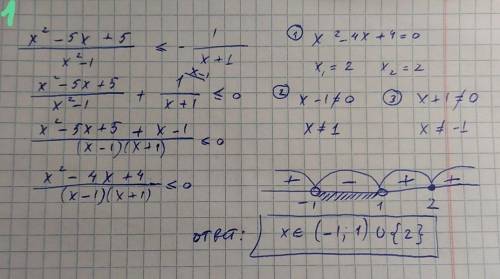 1
(x² - 5x + 5)/(x² - 1) ≤ - 1/(x + 1)
(x² - 5x + 5)/(x² - 1) + 1/(x + 1) ≤ 0
x-1
(x² - 5x + 5 + x - 1)/((x - 1)(x + 1)) ≤ 0
(x² - 4x + 4)/((x - 1)(x + 1)) ≤ 0
① x² - 4x + 4 = 0
x₁ = 2 x₂ = 2
② x - 1 ≠ 0 ③ x + 1 ≠ 0
x ≠ 1 x ≠ -1
+ - + +
-1 1 2
ответ: x ∈ (-1; 1) ∪ {2}